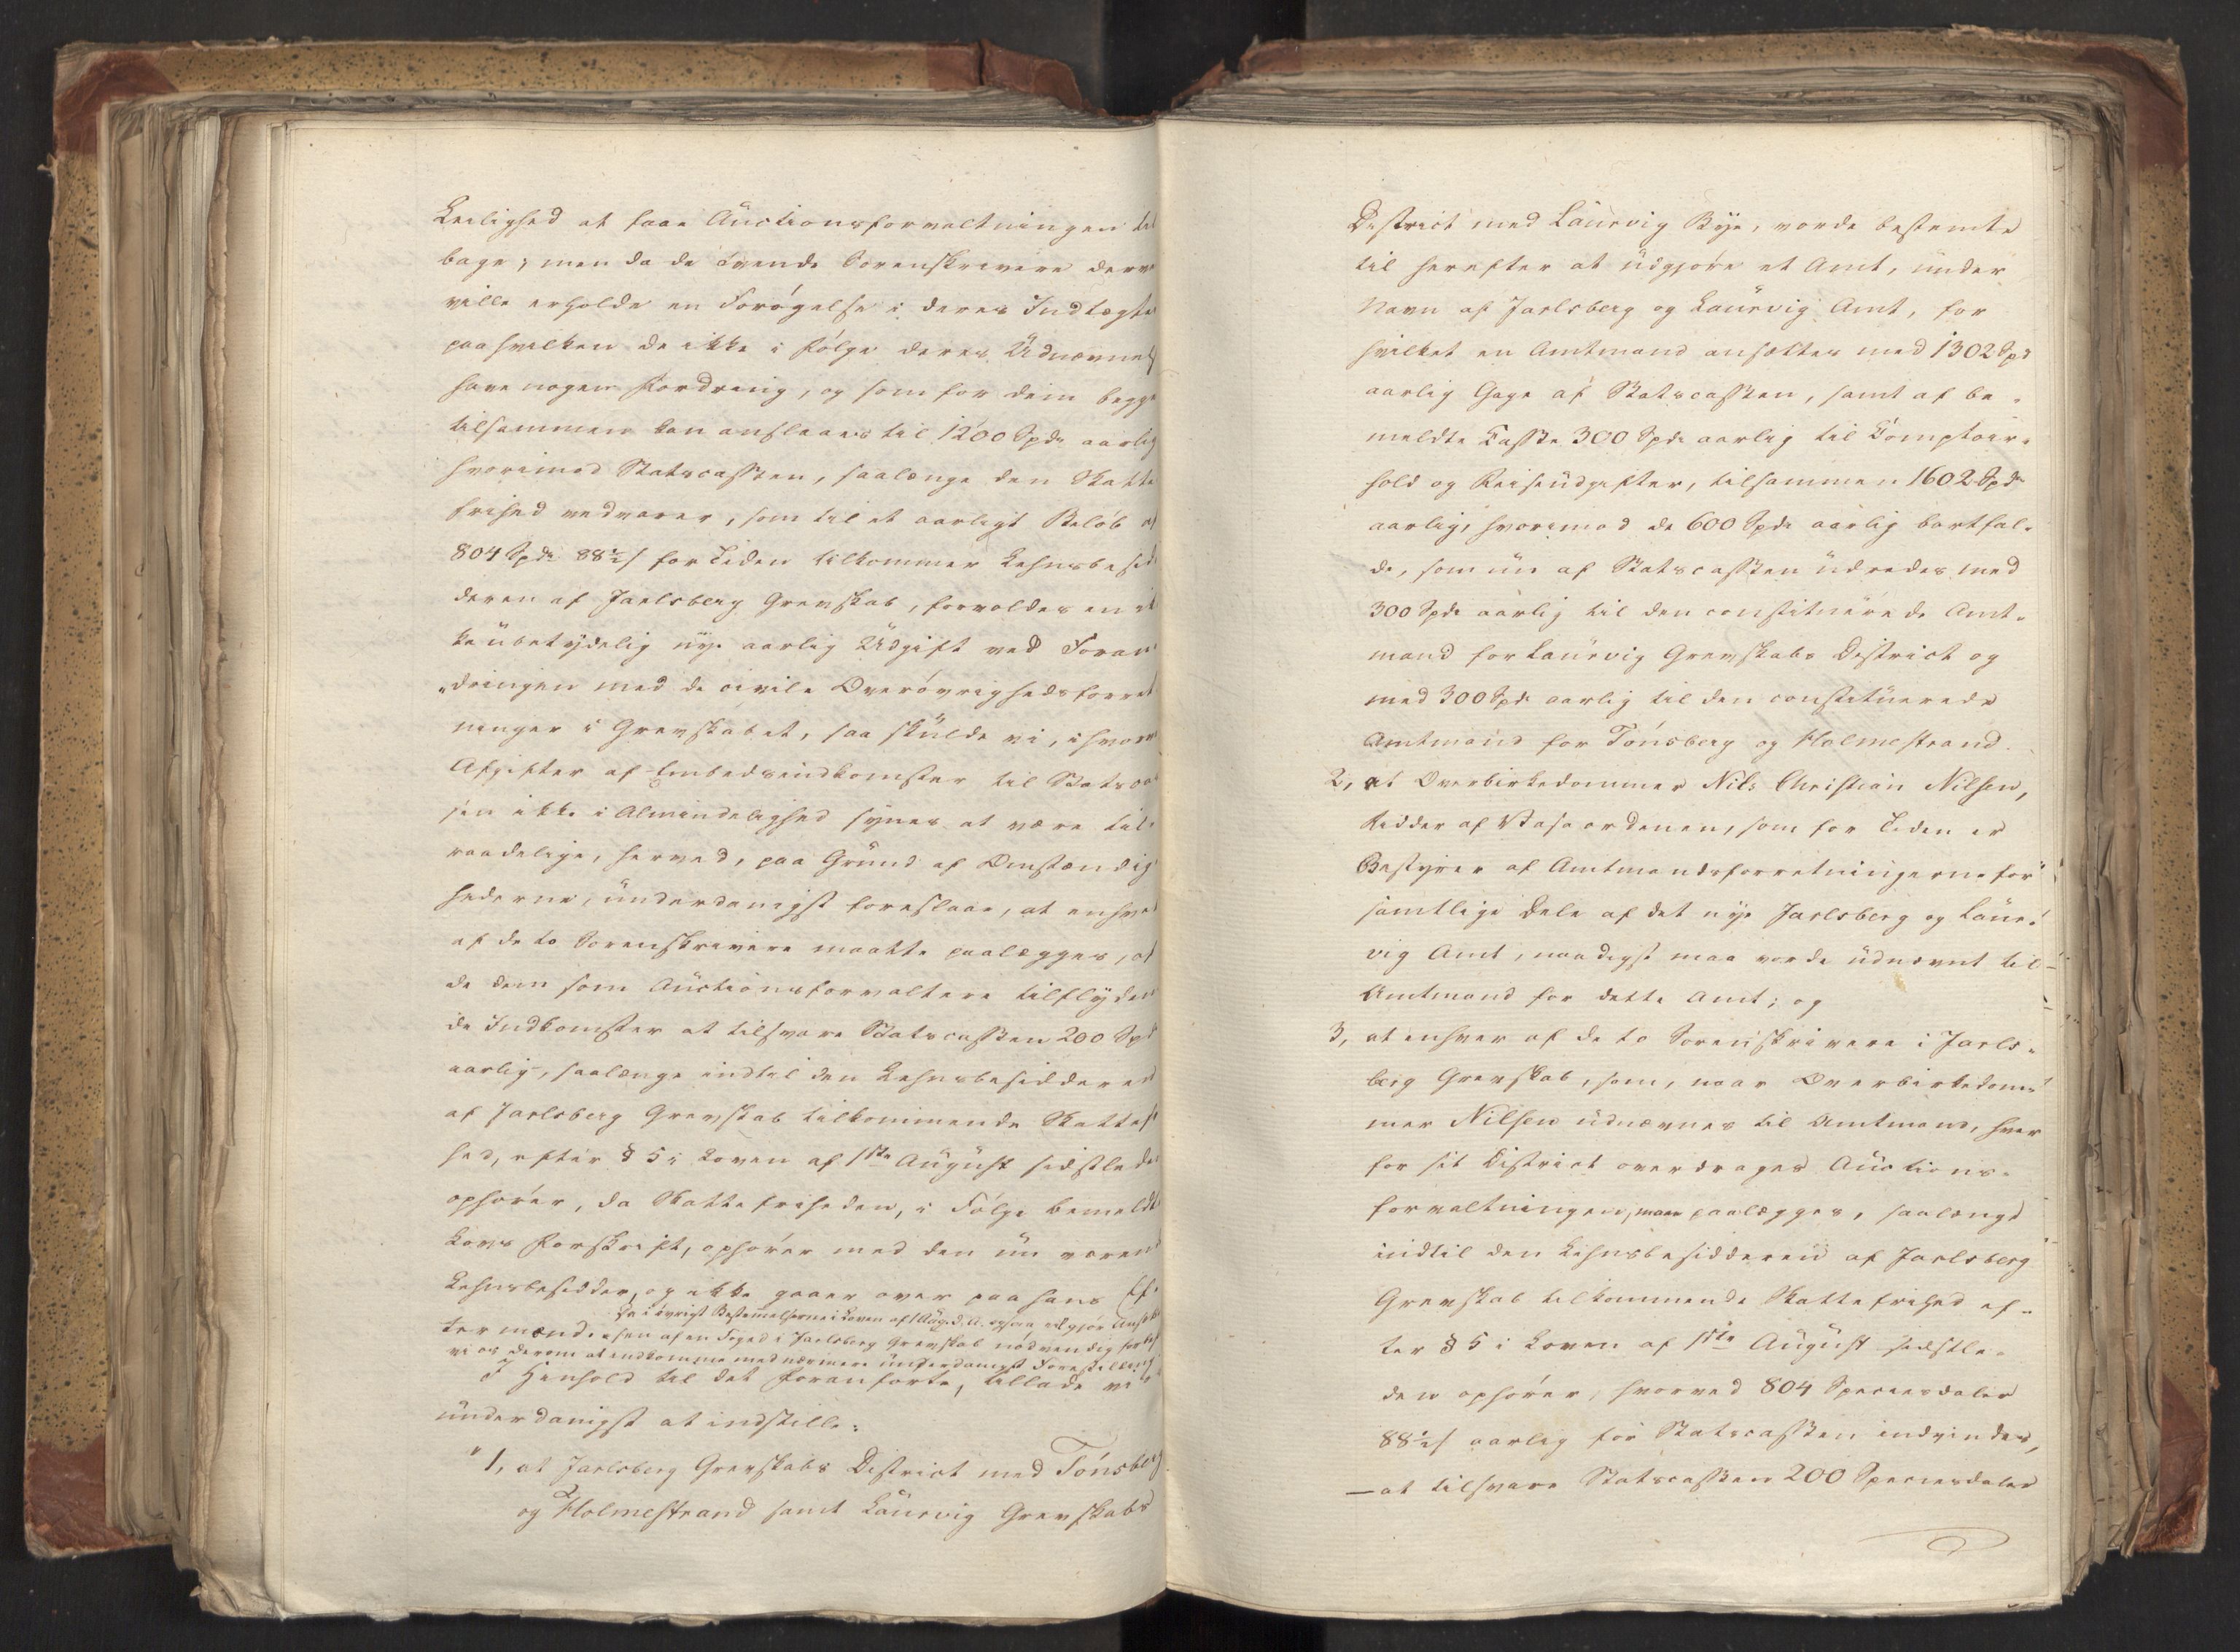 Leilighed at faae Auctionsforvaltningen til
bage; men da de tvende Sorenskrivere derve
ville erholde en Forøgelse i deres Indtægte
paa hvilken de ikke i Følge deres Udnævnels
have nogen Fordring, og som for dem begge
tilsammen kan anslaaes til 1200 Spd aarlig
hvorimod Statscassen, saalænge den Skatte
frihed vedvarer, som til et aarligt Beløb af
804 Spd 88½ s for Tiden tilkommer Lehnsbesid
deren af Jarlsberg Grevskab, forvoldes en ik
ke übetydelig nye aarlig Udgift ved Foran
dringen med de civile Overøvrighedsforret
ninger i Grevskabet, saa skulde vi, ihvorv
Afgifter af Embedsindkomster til Statscas
sen ikke i Almindelighed synes at være til-
raadelige, herved, paa Grund af Omstændig
hederne, underdanigst foreslaae, at enhver
af de to Sorenskrivere maatte paalægges, af
de dem som Auctionsforvaltere tilflyden
de Indkomster at tilsvare Statscassen 200 Spd
aarlig, saalænge indtil den Lehnsbesidderen
af Jarlsberg Grevskab tilkommende Skattefri
hed, efter § 5 i Loven af 1ste August sidstleden
ophører, da Skattefriheden, i Følge bemeldte
Lovs Forskrift, ophører med den nu været
Lehnsbesidder, og ikke gaaer over paa hans Ef-
Da i øvrigt Bestemmelserne i Loven af 1 Aug. d. A. ogsaa udgjør Ansæt
termænd. elsen af en Foged i Jarlsberg Grevskab nødvendig forbeh
vi os derom at indkomme med nærmere underdanigst Forestilling
I Henhold til det Foranførte, tillade vi os
underdanigst at indstille:
"1, at Jarlsberg Grevskabs District med Tönsberg
og Holmestrand samt Laurvig Grevskabs
District med Laurvig Bye, vorde bestemte
til herefter at udgjøre et Amt, under
Navn af Jarlsberg og Laurvig Amt, for
hvilket en Amtmand ansættes med 1302 Spd
aarlig Gage af Statscassen, samt af be-
meldte Casse 300 Spd aarlig til Comptoir-
hold og Reiseudgifter, tilsammen 1602 Spd
aarlig, hvorimod de 600 Spd aarlig bortfal-
de, som nu af Statscassen udredes med
300 Spd aarlig til den constituerede Amt-
mand for Laurvig Grevskabs District og
med 300 Spd aarlig til den constituerede
Amtmand for Tönsberg og Holmestrand.
2, at Overbirkedommer Nils Christian Nilsen,
Ridder af Vasaordenen, som for Tiden er
Bestyrer af Amtmandsforretningerne for
samtlige Dele af det nye Jarlsberg og Laur-
vig Amt, naadigst maa vorde udnævnt til
Amtmand for dette Amt; og
3, at enhver af de to Sorenskrivere i Jarls-
berg Grevskab, som, naar Overbirkedom-
mer Nilsen udnævnes til Amtmand, hver
for sit District overdrages Auctions-
forvaltningen, maae paalægges, saalænge
indtil den Lehnsbesidderen af Jarlsberg
Grevskab tilkommende Skattefrihed ef-
ter § 5 i Loven af 1ste August sidstle-
den ophører, hvorved 804 Speciesdaler
88½ s aarlig for Statscassen indvindes,
— at tilsvare Statscassen 200 Speciesdaler